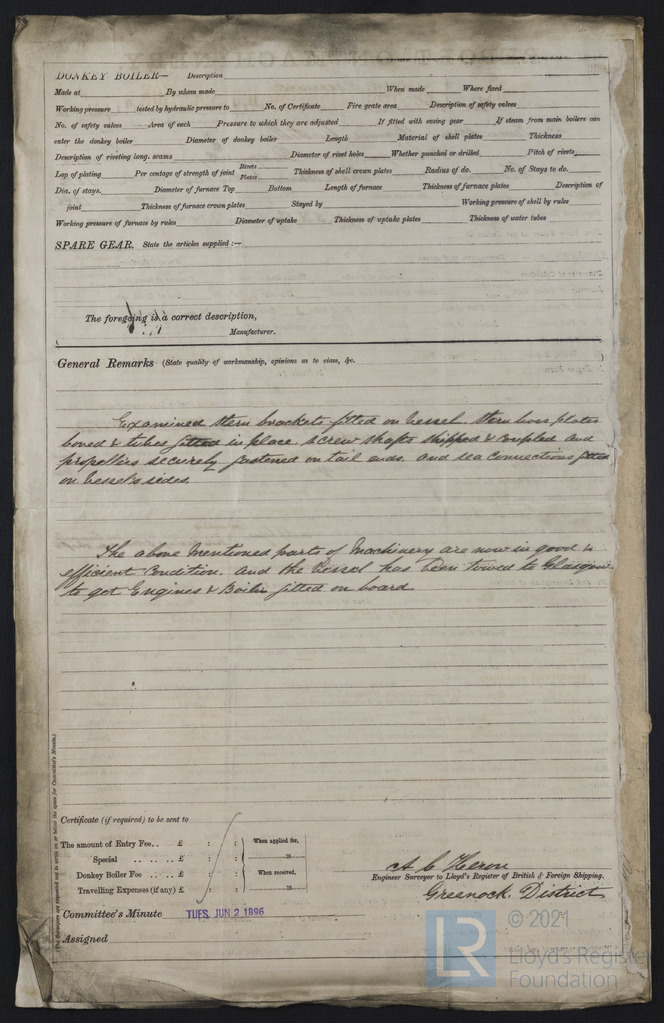 DONKEY BOILER— Description
Made at By whom made When made Where fixed
Working pressure tested by hydraulic pressure to No. of Certificate Fire grate area Description of safety valves
No. of safety valves Area of each Pressure to which they are adjusted If fitted with easing gear If steam from main boilers can
enter the donkey boiler Diameter of donkey boiler Length Material of shell plates Thickness
Description of riveting long. seams Diameter of rivet holes Whether punched or drilled Pitch of rivets
Lap of plating Per centage of strength of joint Rivets Plates Thickness of shell crown plates Radius of do. No. of Stays to do.
Dia. of stays. Diameter of furnace Top Bottom Length of furnace Thickness of furnace plates Description of
joint Thickness of furnace crown plates Stayed by Working pressure of shell by rules
Working pressure of furnace by rules Diameter of uptake Thickness of uptake plates Thickness of water tubes
SPARE GEAR. State the articles supplied:—
The foregoing is a correct description,
Manufacturer.
General Remarks (State quality of workmanship, opinions as to class, &c.
Examined stern brackets fitted on vessel. Stern boss plates
bored & tubes fitted in place screw shafts shipped & coupled and
propellers securely fastened on tail ends. and sea connections fitted
on Vessel's sides.
The above mentioned parts of Machinery are now in good &
efficient condition. and the Vessel has been towed to Glasgow
to get Engines & Boiler fitted on board.
(The Surveyors are requested not to write on or below the space for Committee's Minute.)
Certificate (if required) to be sent to
The amount of Entry Fee.. £ : : When applied for,
Special .. .. .. £ : : 18
Donkey Boiler Fee .. .. £ : : When received,
Travelling Expenses (if any) £ : : 18
A C Heron
Engineer Surveyor to Lloyd's Register of British & Foreign Shipping.
Greenock District
Committee's Minute TUES. JUN 2 1896
Assigned
LR © 2021
Lloyd's Register
Foundation